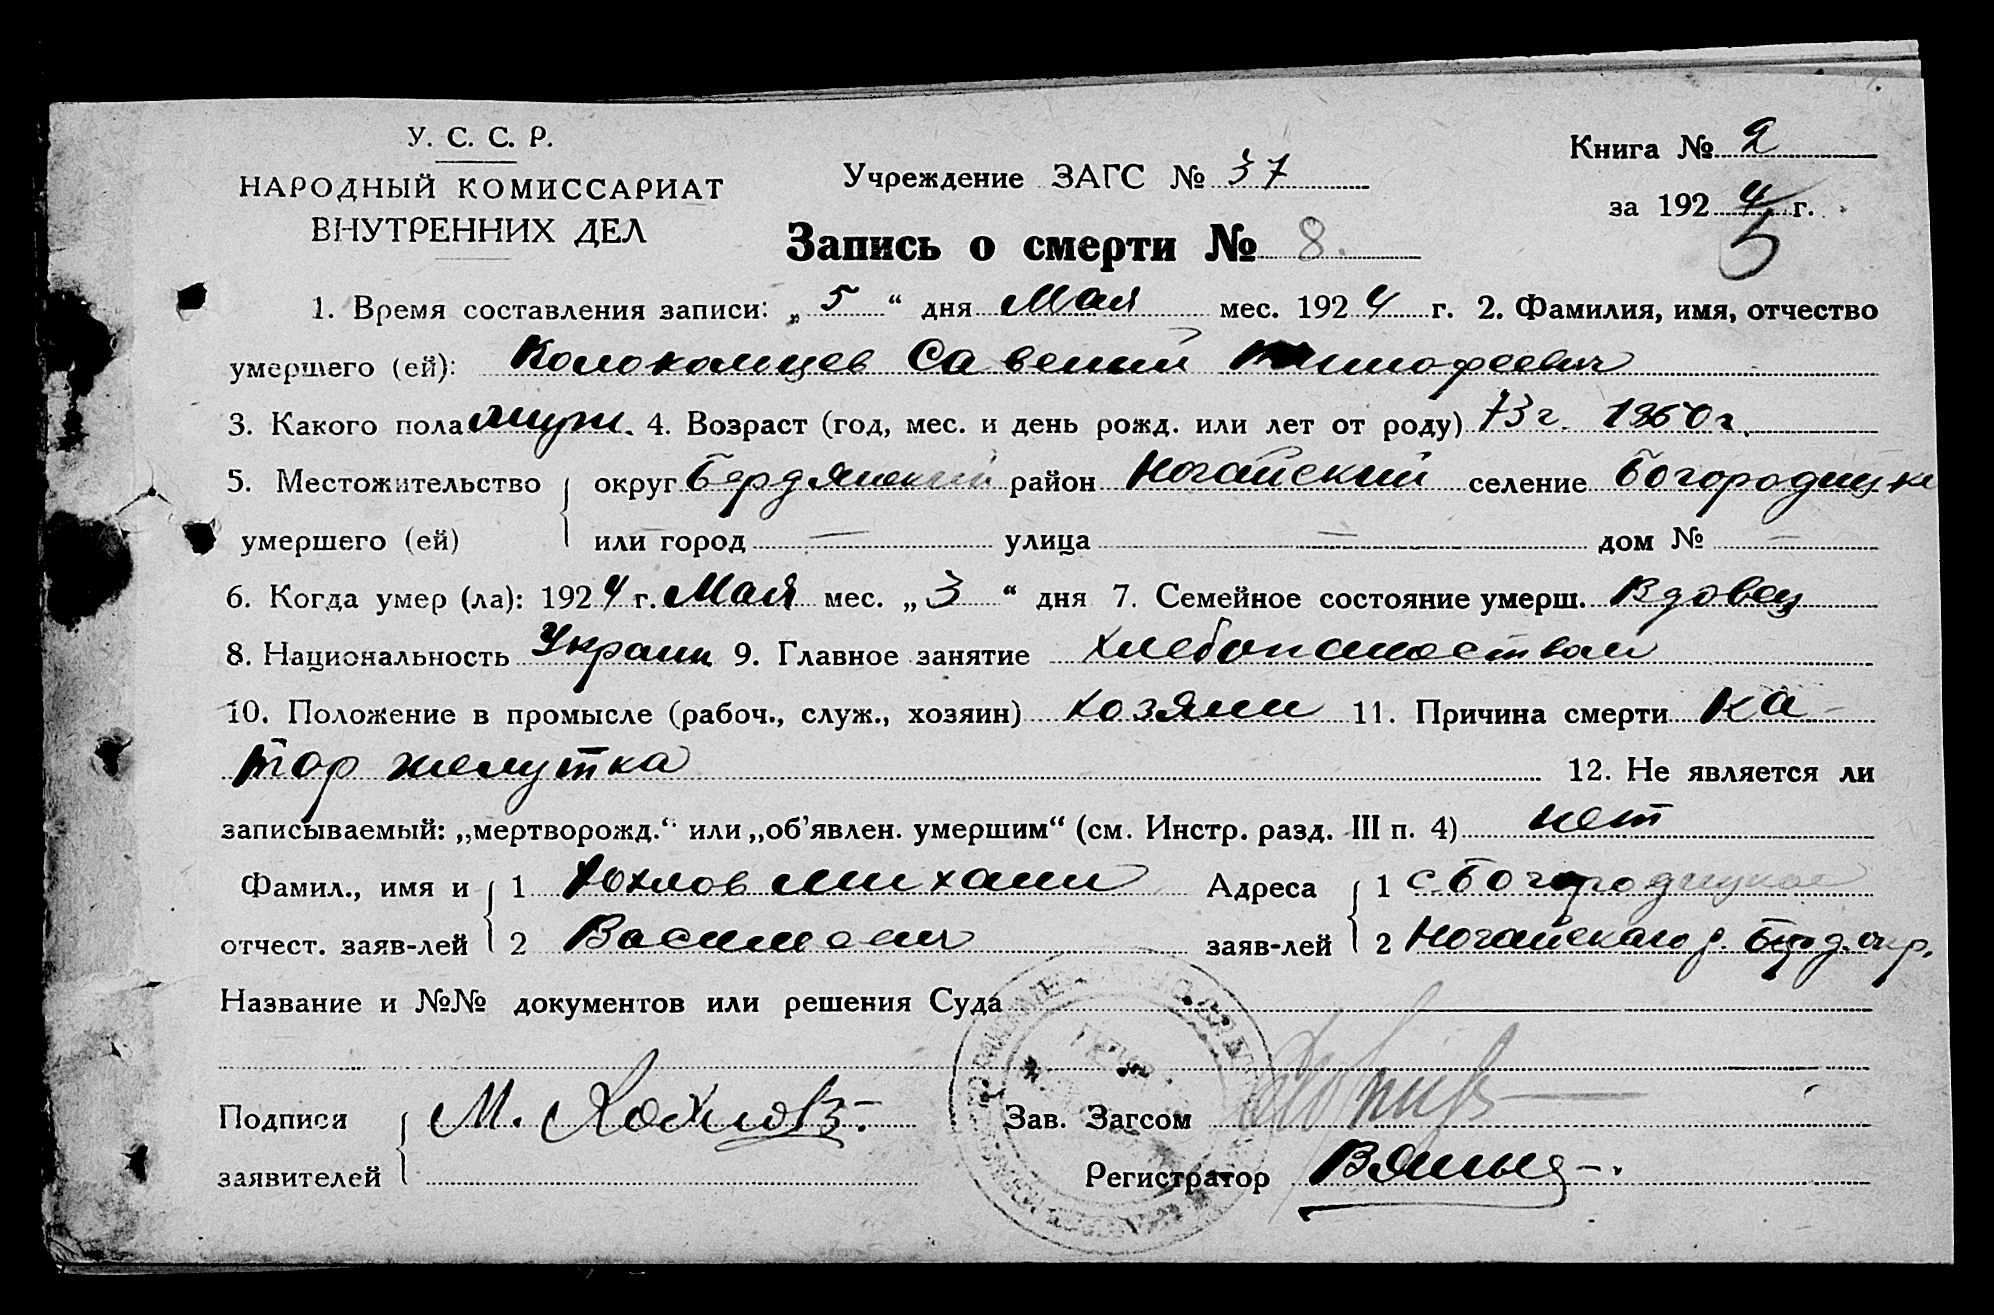 У. С. С. Р.
НАРОДНЫЙ КОМИССАРИАТ
ВНУТРЕННИХ ДЕЛ
Учреждение ЗАГС № 37
Книга № 2
за 1924 г.
5
Запись о смерти № 8.
1. Время составления записи: „5“ дня Мая мес. 1924 г. 2. Фамилия, имя, отчество
умершего (ей): Колокольцев Савелий Тимофеевич
3. Какого пола муж. 4. Возраст (год, мес. и день рожд. или лет от роду) 73 г. 1850 г.
5. Местожительство округ Бердянский район Ногайский селение Богородицке
умершего (ей) или город — улица — дом № —
6. Когда умер (ла): 1924 г. Мая мес. „3“ дня 7. Семейное состояние умерш. Вдовец
8. Национальность Украин 9. Главное занятие хлебопашеством
10. Положение в промысле (рабоч., служ., хозяин) хозяин 11. Причина смерти Ка-
тар желутка 12. Не является ли
записываемый: „мертворожд.“ или „об’явлен. умершим“ (см. Инстр. разд. III п. 4) нет
Фамил., имя и 1 Хохлов Михаил Адреса 1 с. Богородицкое
отчест. заяв-лей 2 Васильевич заяв-лей 2 Ногайскаго р. Берд. окр.
Название и №№ документов или решения Суда
Подписи М. Хохловъ Зав. Загсом
заявителей Регистратор